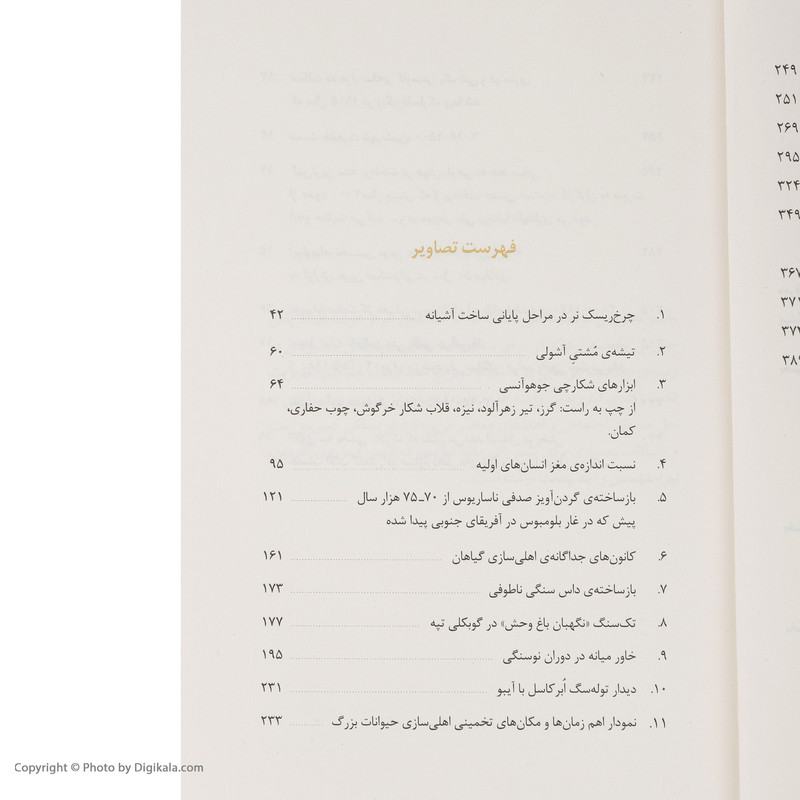 فهرست تصاویر
۱. چرخ‌ریسک نر در مراحل پایانی ساخت آشیانه ۴۲
۲. تیشه‌ی مُشتیِ آشولی ۶۰
۳. ابزارهای شکارچی جوهوآنسی ۶۴
از چپ به راست: گرز، تیر زهرآلود، نیزه، قلاب شکار خرگوش، چوب حفاری،
کمان.
۴. نسبت اندازه‌ی مغز انسان‌های اولیه ۹۵
۵. بازساخته‌ی گردن‌آویز صدفی ناساریوس از ۷۰ـ۷۵ هزار سال ۱۲۱
پیش که در غار بلومبوس در آفریقای جنوبی پیدا شده
۶. کانون‌های جداگانه‌ی اهلی‌سازی گیاهان ۱۶۱
۷. بازساخته‌ی داس سنگی ناطوفی ۱۷۳
۸. تک‌سنگ «نگهبان باغ وحش» در گوبکلی تپه ۱۷۷
۹. خاور میانه در دوران نوسنگی ۱۹۵
۱۰. دیدار توله‌سگ اُبرکاسل با آیبو ۲۳۱
۱۱. نمودار اهم زمان‌ها و مکان‌های تخمینی اهلی‌سازی حیوانات بزرگ ۲۳۳
۲۴۹
۲۵۱
۲۶۹
۲۹۵
۳۲۴
۳۴۹
Copyright © Photo by Digikala.com